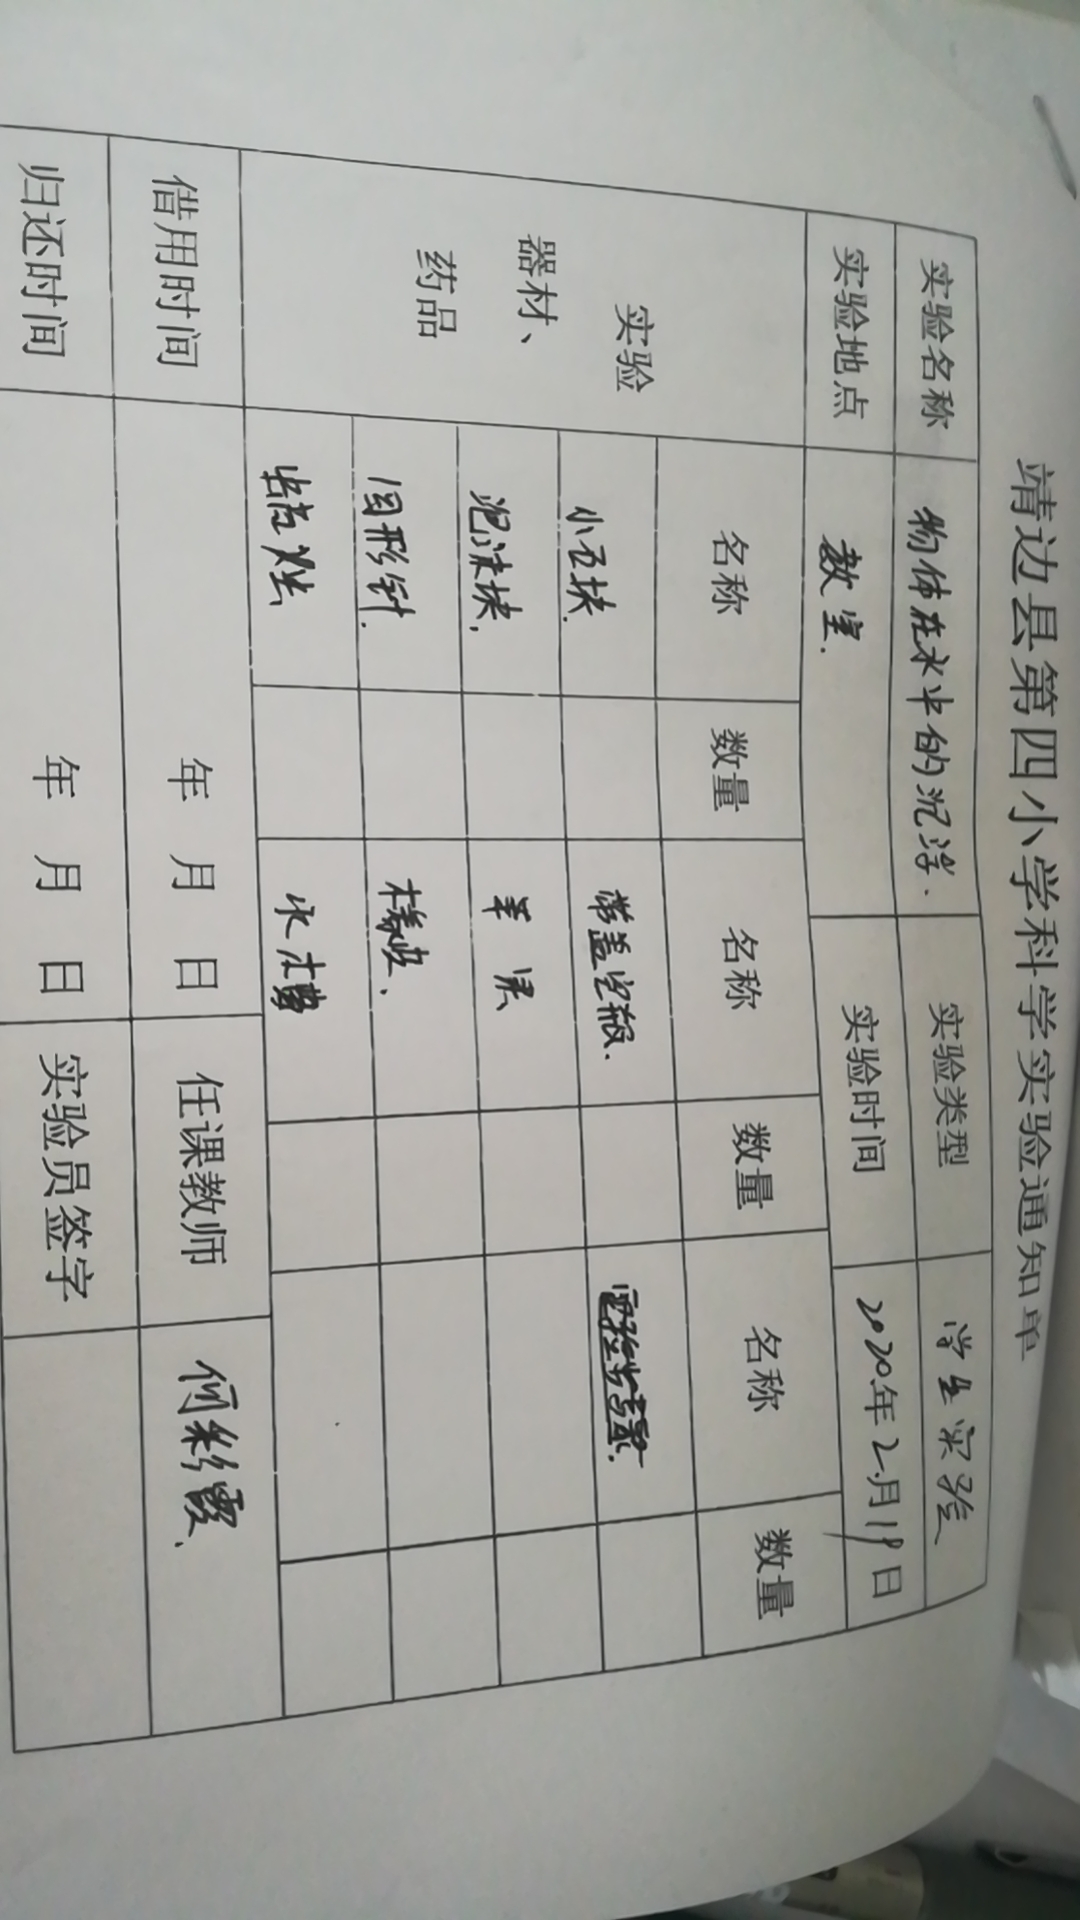 靖边县第四小学科学实验通知单
实验名称 物体在水中的沉浮. 实验类型 学生实验
实验地点 教室. 实验时间 2020年2月19日
实验器材、药品 名称 数量 名称 数量 名称 数量
小石块. 带盖空瓶.
泡沫块.
回形针. 橡皮.
蜡烛 水槽
借用时间 年 月 日 任课教师 何彩霞、
归还时间 年 月 日 实验员签字